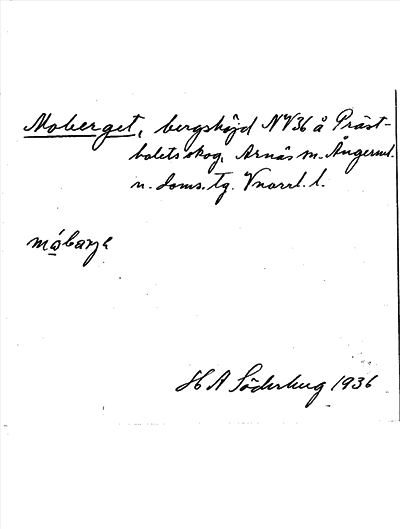 Moberget, bergshöjd NV36 å Präst-
bolets skog, Arnäs sn. Ångerml.
n. doms. tg. Vnorrl. l.
H A Söderberg 1936